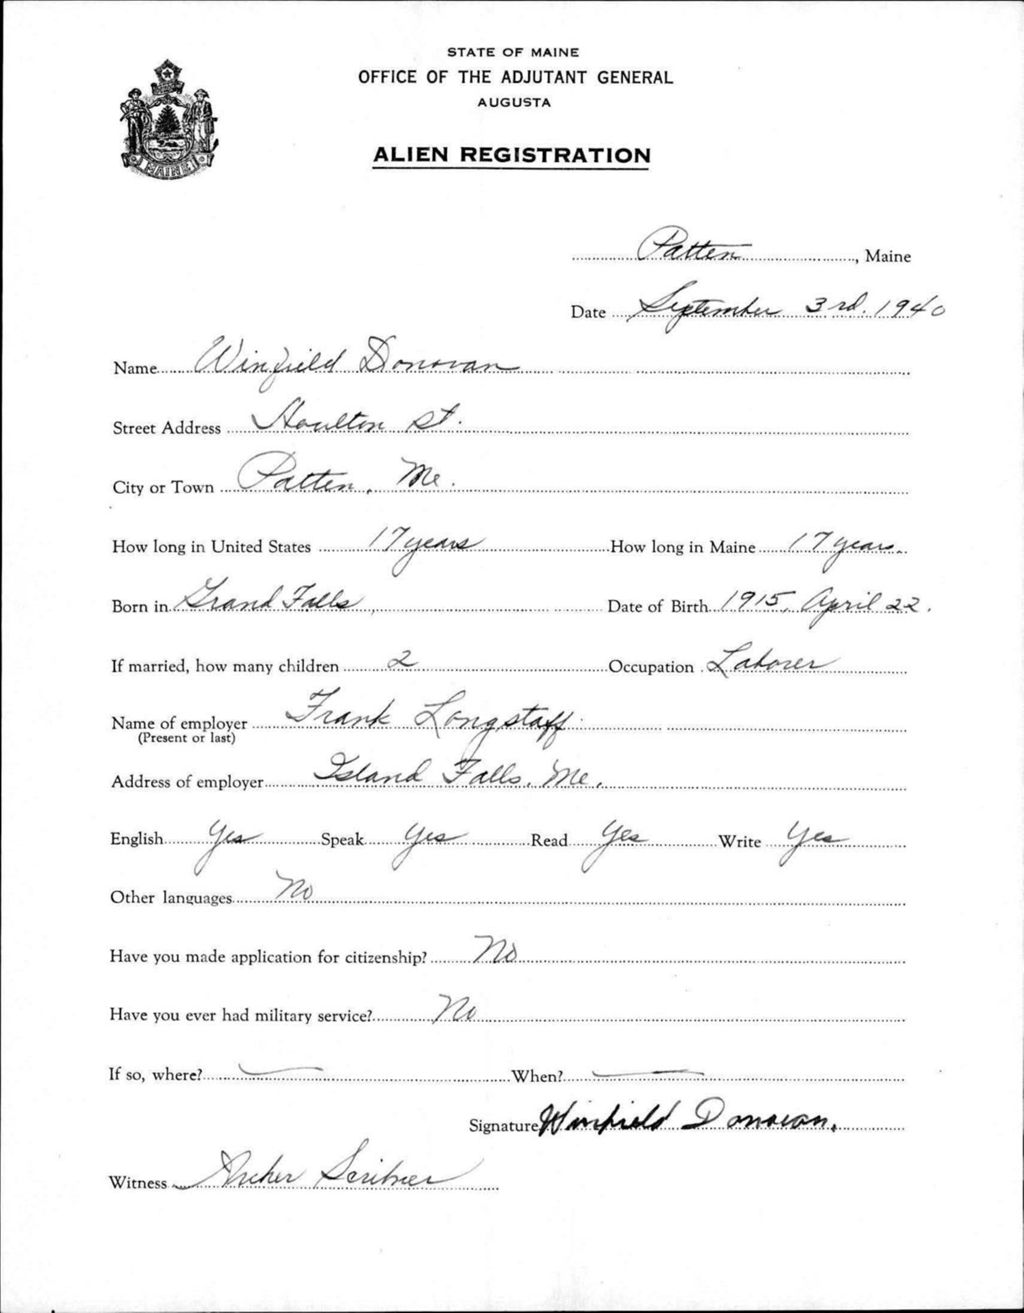 STATE OF MAINE
OFFICE OF THE ADJUTANT GENERAL
AUGUSTA
ALIEN REGISTRATION
MAINE
Patten, Maine
Date September 3rd. 1940
Name Winfield Donovan
Street Address Houlton St.
City or Town Patten, Me.
How long in United States 17 years How long in Maine 17 years.
Born in Grand Falls, Date of Birth 1915, April 22.
If married, how many children 2 Occupation Laborer
Name of employer Frank Longstaff.
(Present or last)
Address of employer Island Falls, Me.
English Yes Speak Yes Read Yes Write Yes
Other languages No
Have you made application for citizenship? No
Have you ever had military service? No
If so, where? — When? —
Signature Winfield Donovan.
Witness Archer Scribner